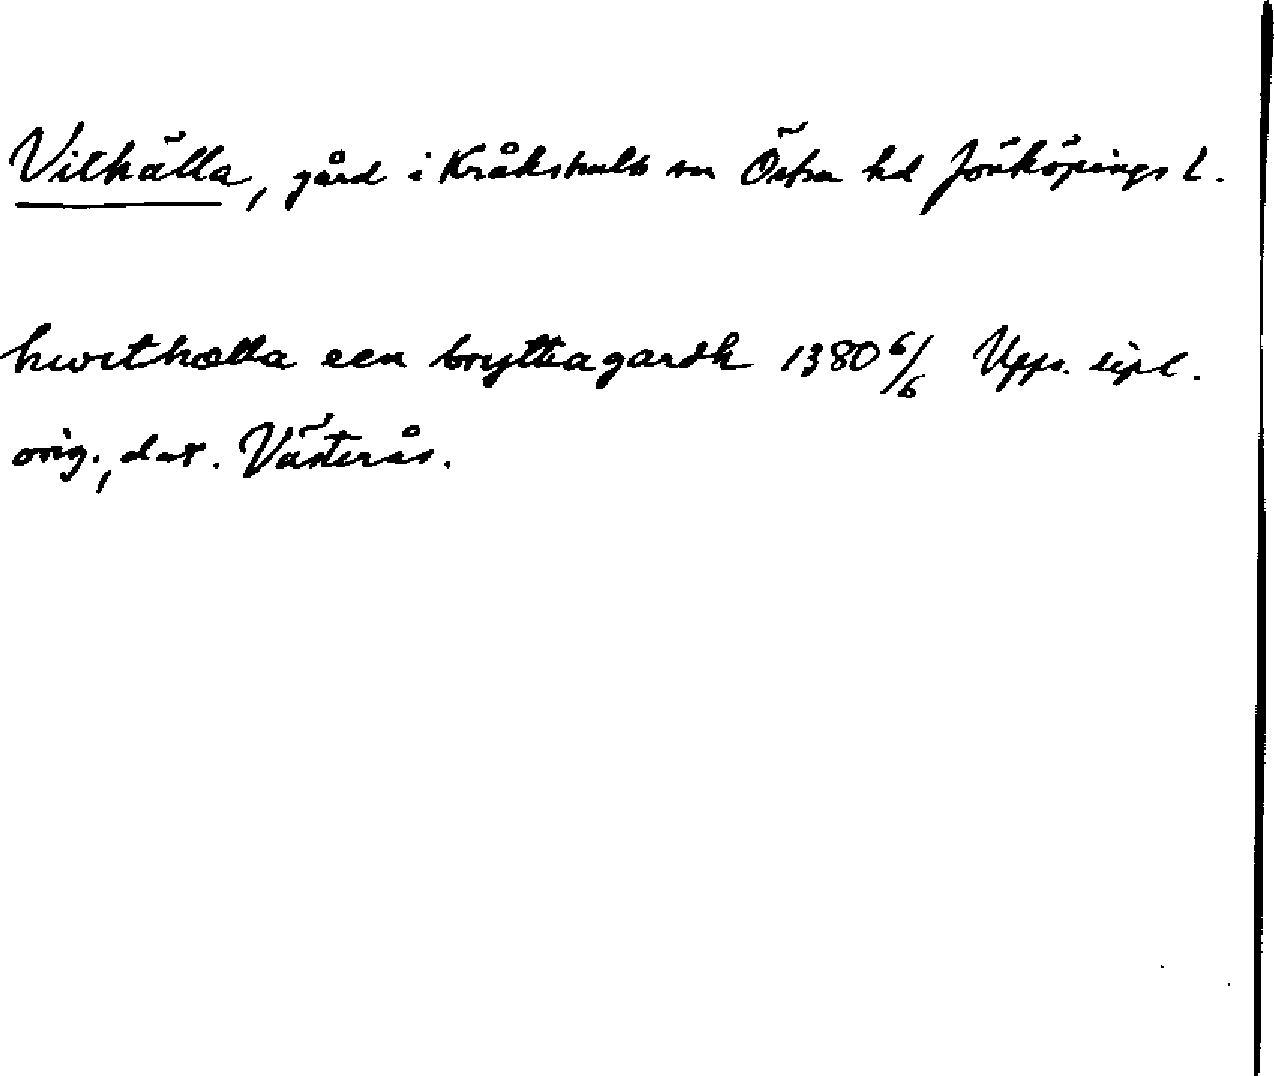 Vithälla, gård i Kråkshults sn Östra hd Jönköpings l.
hwithælla een bryttagardh 1380 6/6 Upps. eipl.
orig., dat. Västerås.